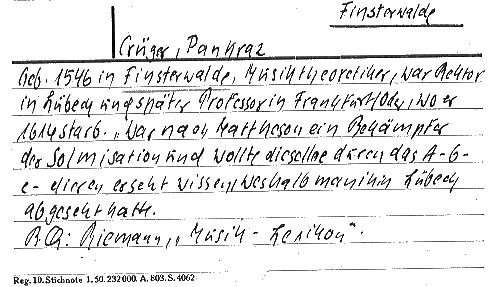 Finsterwalde
Crüger, Pankraz
Geb. 1546 in Finsterwalde, Musiktheoretiker, war Rektor
in Lübeck und später Professor in Frankfurt/Oder, wo er
1614 starb. „War nach Mattheson ein Bekämpfer
der Solmisation und wollte dieselbe durch das A-b-
c-dieren ersetzt wissen, weshalb man ihn in Lübeck
abgesetzt hatte.
Riemann, „Musik-Lexikon".
Reg. 10. Stichnote 1. 50. 232000. A. 803. S. 4062